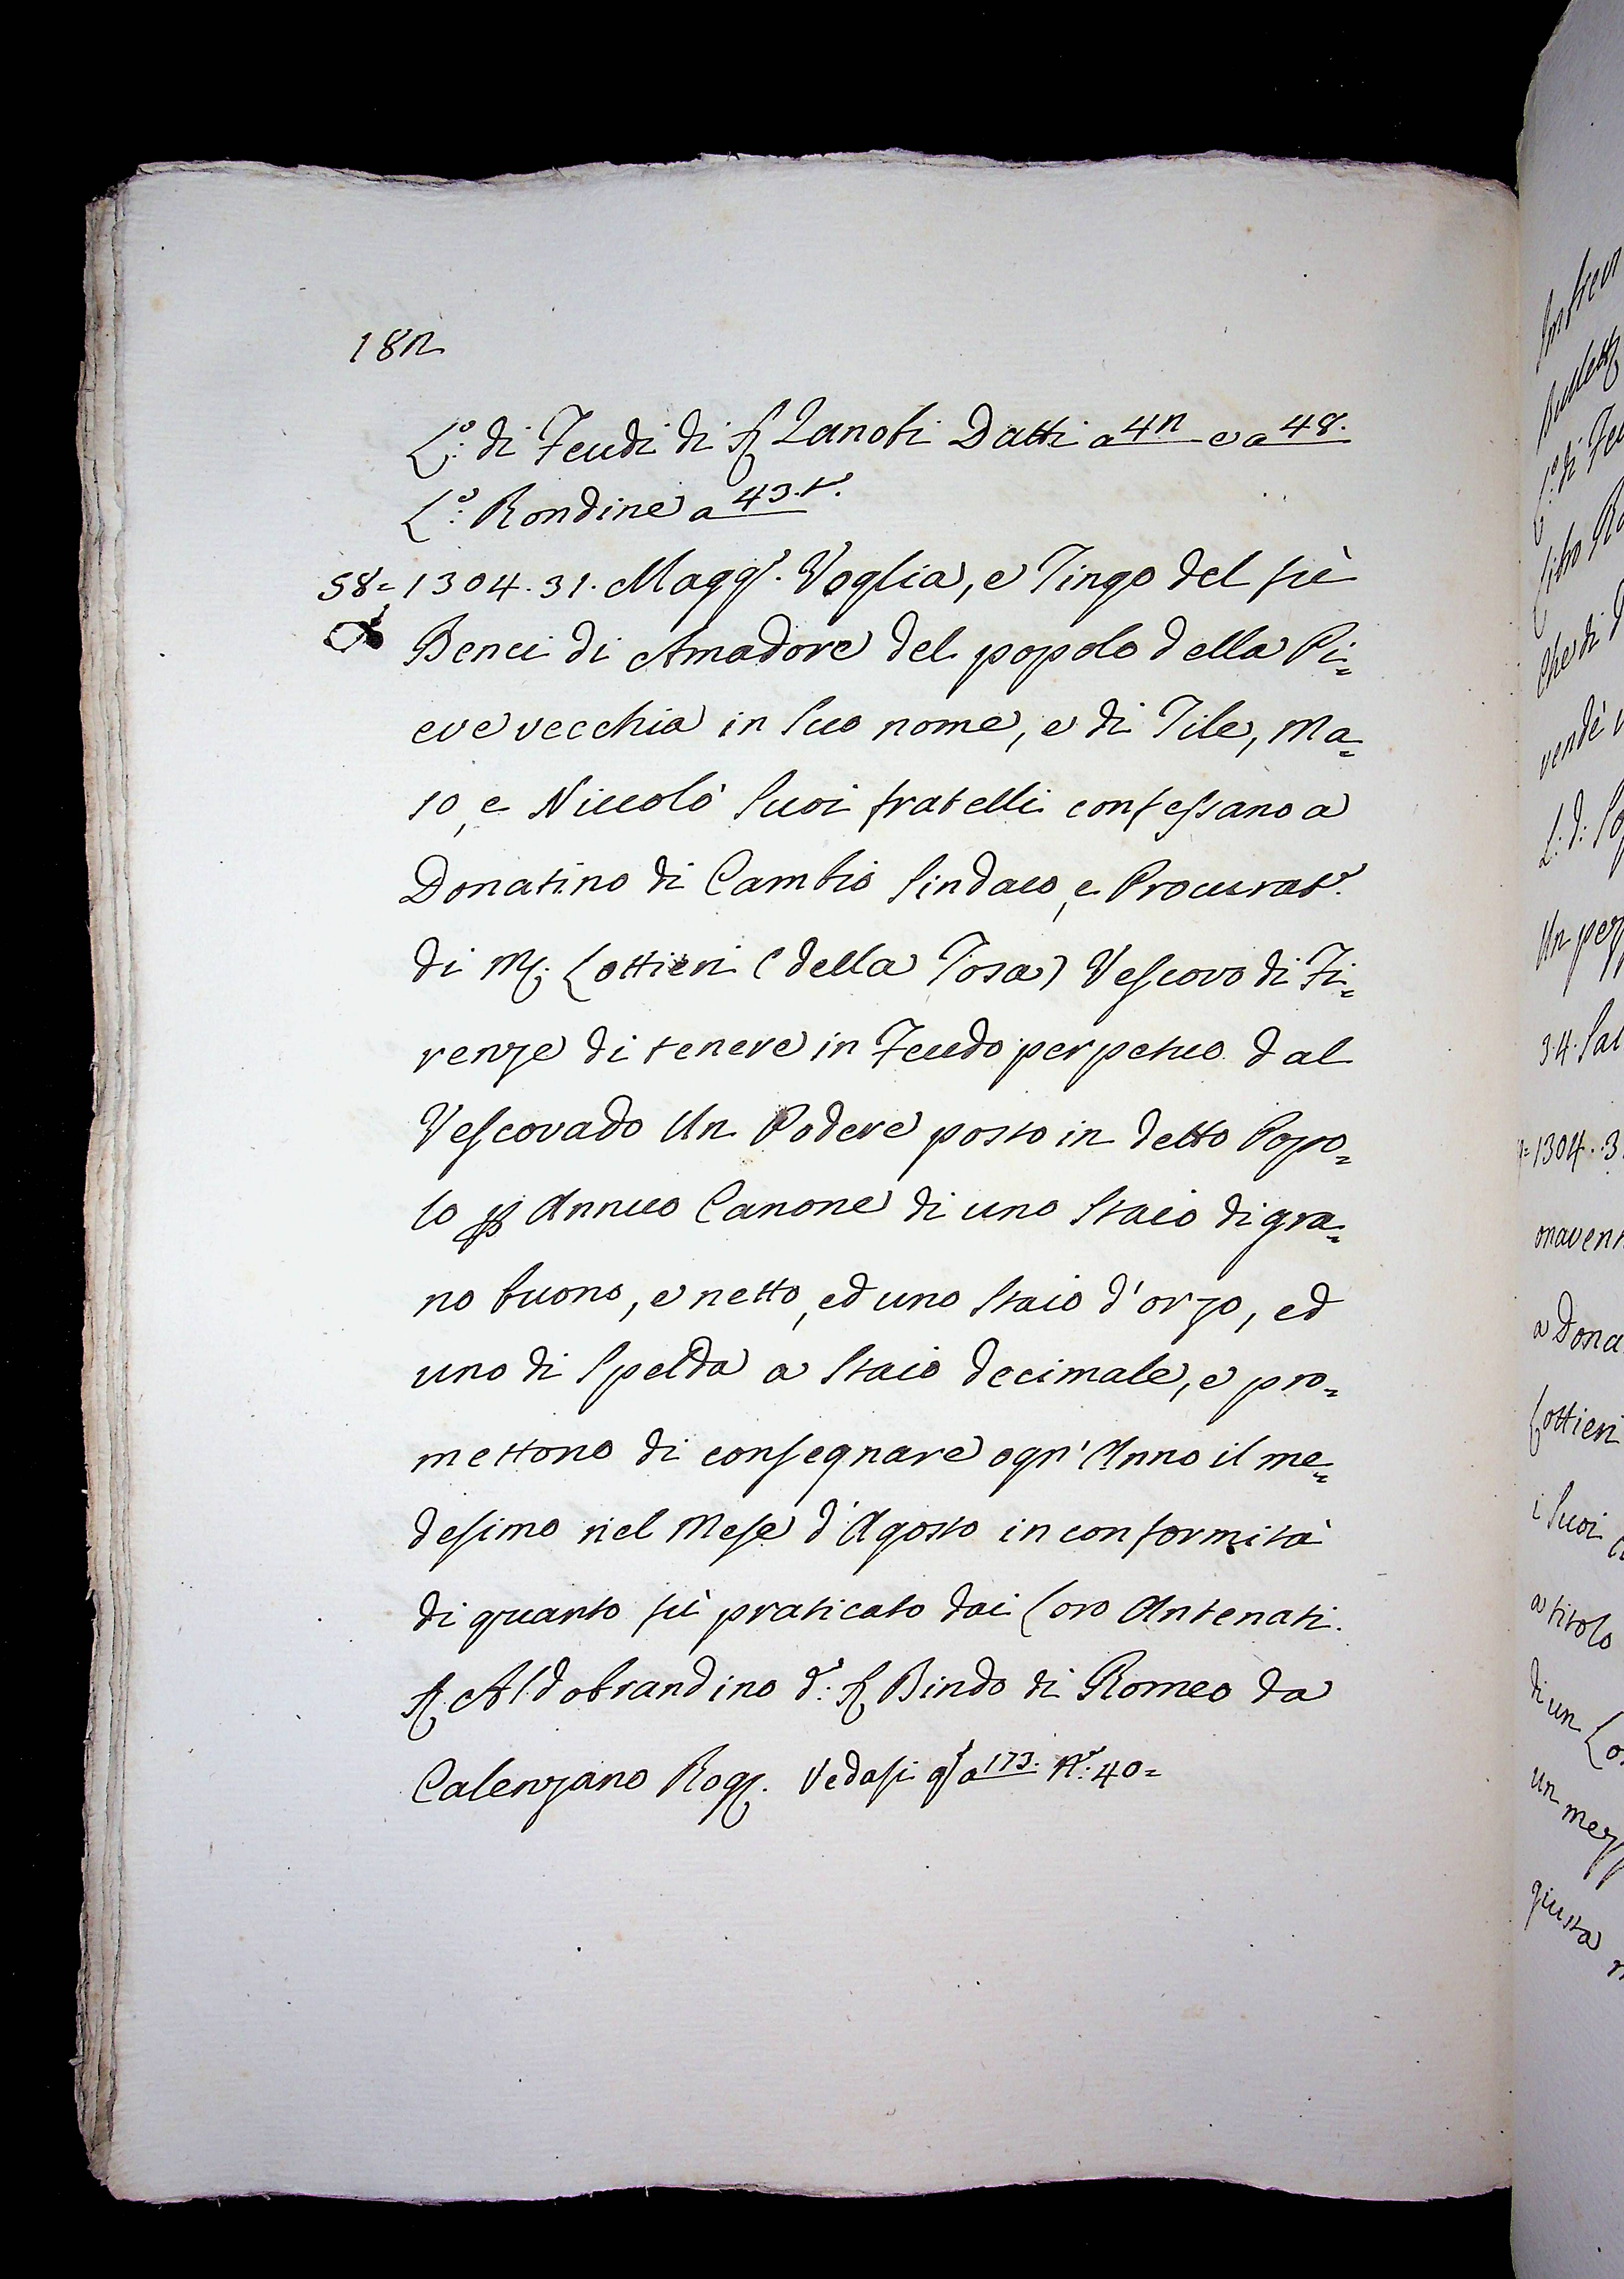 182
L.o di Feudi di S. Zanobi Datti a 42 e a 48.
L.o Rondine a 43.t.
58= 1304. 31. Magg.o Voglia, e Tingo del fù
Benci di Amadore del popolo della Pi=
eve vecchia in suo nome, e di Tile, Ma=
so, e Niccolò suoi fratelli confessano a
Donatino di Cambio Sindaco, e Procurat.e
di M. Lottieri (della Tosa) Vescovo di Fi=
renze di tenere in Feudo perpetuo dal
Vescovado Un Podere posto in detto Popo=
lo p Annuo Canone di uno Staio di gra=
no buono, e netto, ed uno Staio d'orzo, ed
uno di Spelda a Staio decimale, e pro=
mettono di consegnare ogn' Anno il me=
desimo nel Mese d'Agosto in conformità
di quanto fù praticato dai Loro Antenati.
S. Aldobrandino d: S. Bindo di Romeo da
Calenzano Rog. Vedasi q. a 173. N.o 40=
vendè
Un
34.
1304. 3
a Dona
Lottieri
i Suoi
a titolo
di un
un mez
giusta